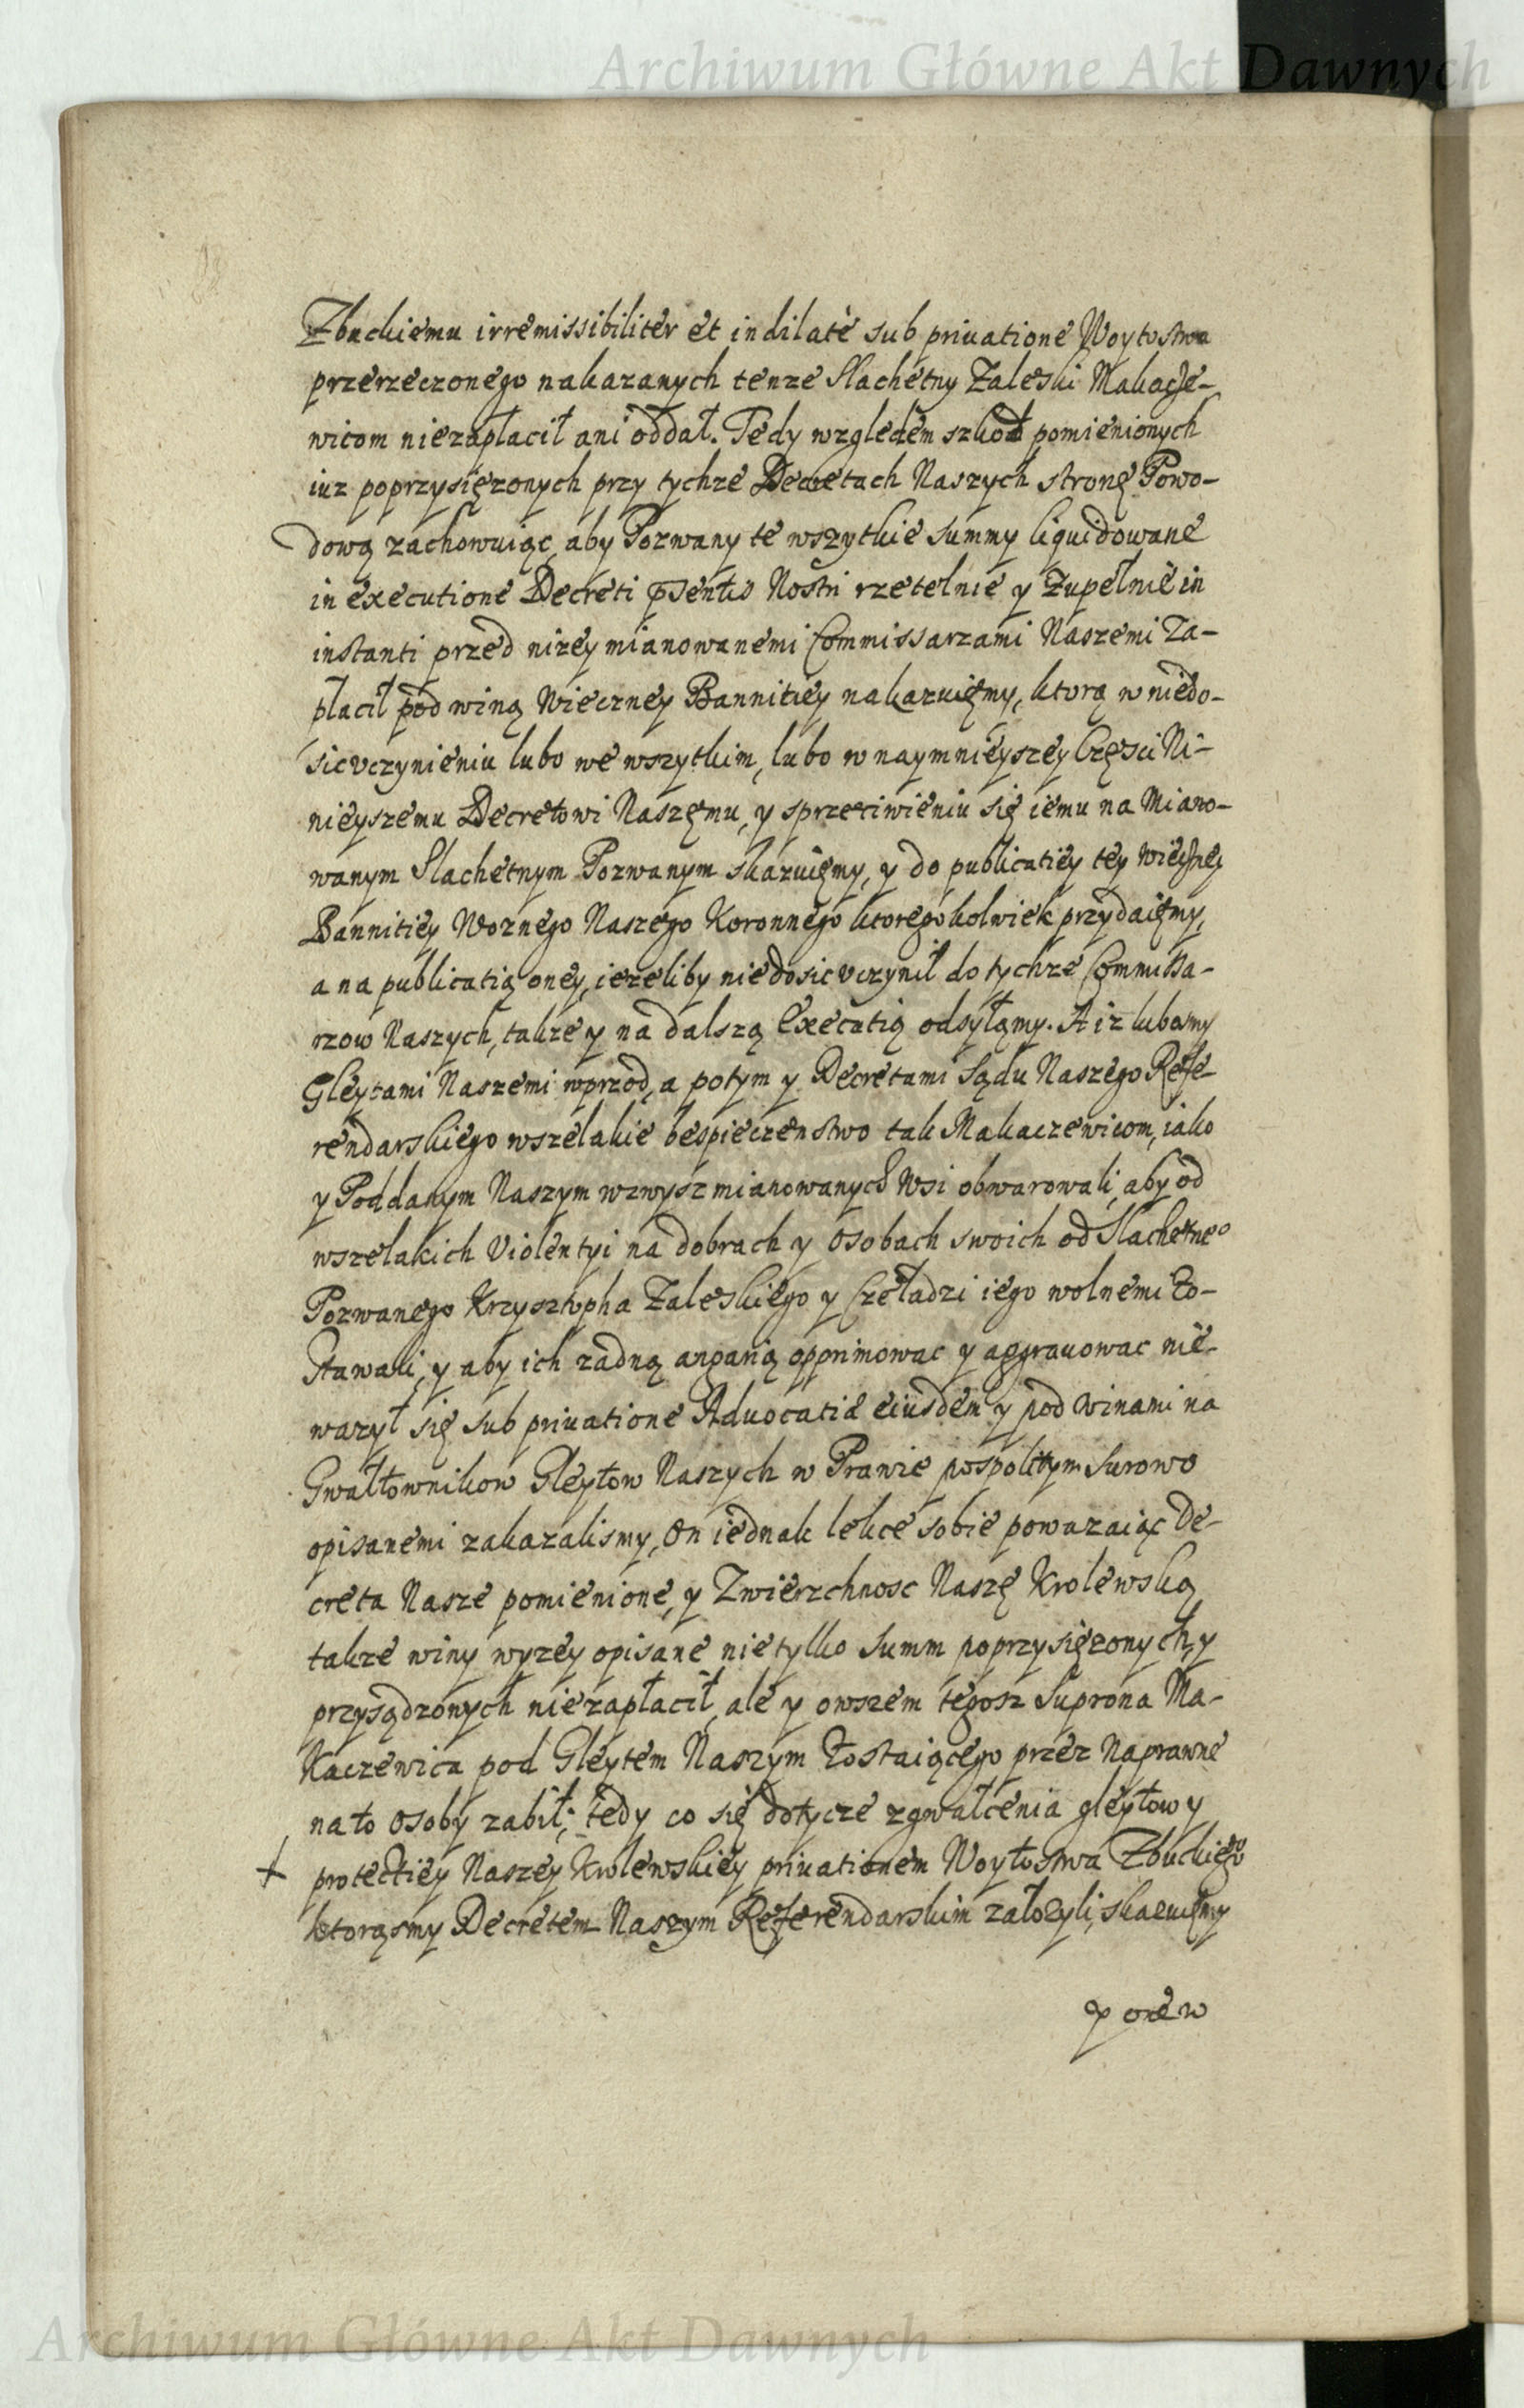 Archiwum Główne Akt Dawnych
Zbuckiemu irremissibiliter et indilatè sub priuatione Woytostwa
przerzeczonego nakazanych tenze Slachetny Zaleski Makacze-
wicom niezapłacił ani oddał. Tedy względem szkod pomienionych
iuz poprzysięzonych przy tychze Decretach Naszych stronę Powo-
dową zachowuiąc, aby Pozwany te wszytkie summy liquidowane
in executione Decreti pñtis Nostri rzetelnie y zupełnie in
instanti przed nizey mianowanemi Commissarzami Naszemi za-
płacił pod winą Wieczney Bannitiey nakazuięmy, ktorą w niedo-
sicvczynieniu lubo we wszytkim, lubo w naymnieyszey Częsci Ni-
nieyszemu Decretowi Naszęmu, y sprzeciwieniu się iemu na Miano-
wanym Slachetnym Pozwanym skazuięmy, y do publicatiey tey wieczney
Bannitiey Woznego Naszego Koronnego ktoregokolwiek przydaięmy,
a na publicatią oney, iezeliby niedosic vczynił do tychze Commissa-
rzow Naszych, takze y na dalszą Executią odsyłamy. A iz lubosmy
Gleytami Naszemi wprzod, a potym y Decretami Sądu Naszego Refe
rendarskiego wszelakie bespieczenstwo tak Makaczewicom, iako
y Poddanym Naszym wzwysz mianowanych Wsi obwarowali, aby od
wszelakich Violentyi na dobrach y osobach swoich od Slachetneo
Pozwanego Krzysztopha Zaleskiego y Czeladzi iego wolnemi zo-
stawali, y aby ich zadną angarią opprimowac y aggrauowac nie-
wazył się sub priuatione Aduocatiæ eiusdem y pod winami na
Gwałtownikow Gleytow Naszych w Prawie pospolitym surowo
opisanemi zakazalismy, On iednak lekce sobie powazaiąc De-
creta Nasze pomienione, y Zwierzchnosc Naszę Krolewską
takze winy wyzey opisane nietylko Summ poprzysięzonych, y
przysądzonych niezapłacił, ale y owszem tegosz Suprona Ma-
kaczewica pod Gleytem Naszym zostaiącego przez Naprawne
na to osoby zabił; tedy co się dotycze zgwałcenia gleytow y
+ protectiey Naszey Krolewskiey priuationem Woytostwa Zbuckiego
ktorąsmy Decretem Naszym Referendarskim załozyli, skazuięmy
y one w
Archiwum Główne Akt Dawnych